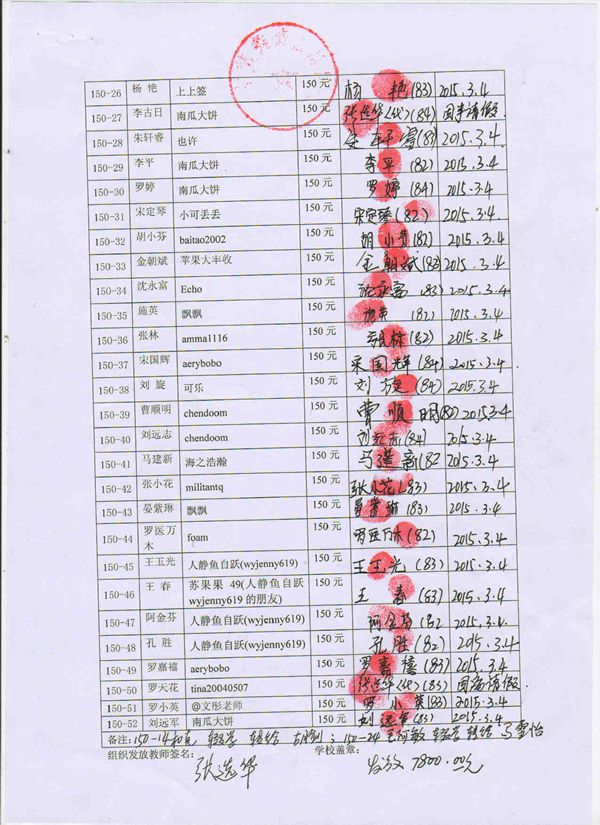 150-26 杨 艳 上上签 150 元 杨 艳 (83) 2015.3.4
150-27 李古日 南瓜大饼 150 元 张选华(代) (84) 因事请假
150-28 朱轩睿 也许 150 元 朱轩睿 (83) 2015.3.4
150-29 李平 南瓜大饼 150 元 李平 (82) 2015.3.4
150-30 罗婷 南瓜大饼 150 元 罗婷 (84) 2015.3.4
150-31 宋定琴 小可丢丢 150 元 宋定琴 (82) 2015.3.4
150-32 胡小芬 baitao2002 150 元 胡小芬 (82) 2015.3.4
150-33 金朝斌 苹果大丰收 150 元 金朝斌 (83) 2015.3.4
150-34 沈永富 Echo 150 元 沈永富 (83) 2015.3.4
150-35 施英 飘飘 150 元 施英 (82) 2015.3.4
150-36 张林 amma1116 150 元 张林 (82) 2015.3.4
150-37 宋国辉 aerybobo 150 元 宋国辉 (84) 2015.3.4
150-38 刘 旋 可乐 150 元 刘旋 (84) 2015.3.4
150-39 曹顺明 chendoom 150 元 曹顺明 (82) 2015.3.4
150-40 刘远志 chendoom 150 元 刘远志 (84) 2015.3.4
150-41 马建新 海之浩瀚 150 元 马建新 (82 2015.3.4
150-42 张小花 militantq 150 元 张小花 (83) 2015.3.4
150-43 晏紫琳 飘飘 150 元 晏紫琳 (83) 2015.3.4
150-44 罗医万木 foam 150 元 罗医万木 (82) 2015.3.4
150-45 王玉光 人静鱼自跃(wyjenny619) 150 元 王玉光 (83) 2015.3.4
150-46 王 春 苏果果 49(人静鱼自跃 wyjenny619 的朋友) 150 元 王 春 (83) 2015.3.4
150-47 阿金芬 人静鱼自跃(wyjenny619) 150 元 阿金芬 (82 2015.3.4
150-48 孔 胜 人静鱼自跃(wyjenny619) 150 元 孔胜 (82) 2015.3.4
150-49 罗嘉禧 aerybobo 150 元 罗嘉禧 (83) 2015.3.4
150-50 罗天花 tina20040507 150 元 张选华(代) (83) 因病请假
150-51 罗小英 @文彤老师 150 元 罗小英 (83) 2015.3.4
150-52 刘远军 南瓜大饼 150 元 刘远军 (83) 2015.3.4
备注: 150-14 辍学 转给 ; 150-24 辍学 转给 马雪怡
组织发放教师签名: 张选华 学校盖章: 发放 7800.00元